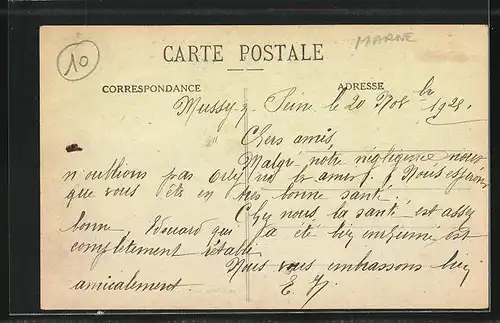 10
MARNE
CARTE POSTALE
CORRESPONDANCE
ADRESSE
Mussy s. Seine le 20 Nov br 1925.
Chers amis,
Malgré notre négligence nous
n'oublions pas nos Nous espérons
que vous êts en très bonne santé.
Chez nous la santé est assez
bonne, Edouard qui a été bien enrhumé est
complètement rétabli
Nous vous embrassons bien
amicalement.